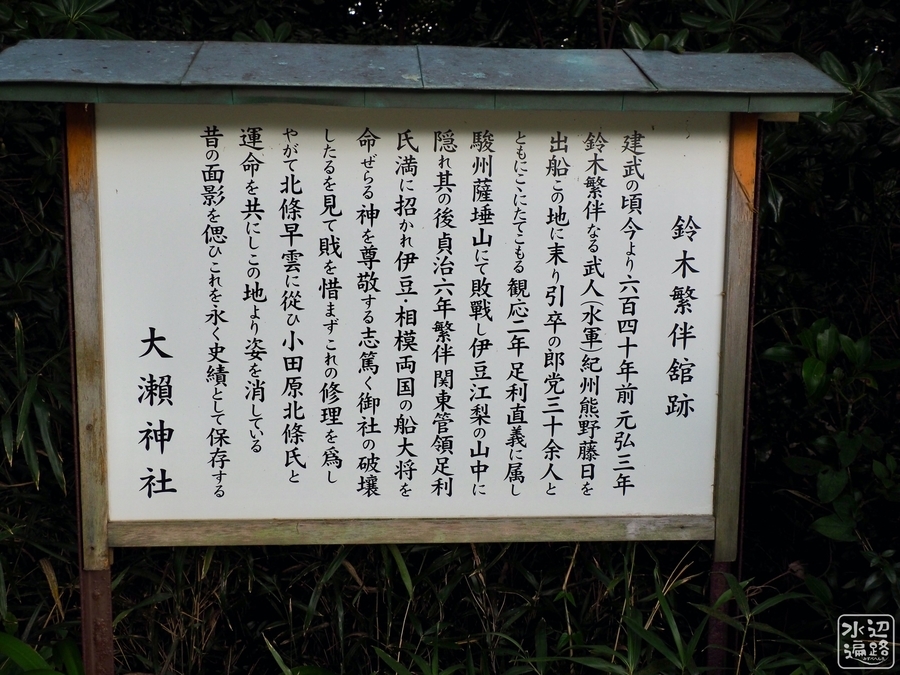 鈴木繁伴舘跡
建武の頃今より六百四十年前元弘三年
鈴木繁伴なる武人(水軍)紀州熊野藤日を
出船この地に末り引卒の郎党三十余人と
ともにここにたてこもる観応二年足利直義に属し
駿州薩埵山にて敗戰し伊豆江梨の山中に
隠れ其の後貞治六年繁伴関東管領足利
氏満に招かれ伊豆·相模両国の船大将を
命ぜらる神を尊敬する志篤く御社の破壤
したるを見て賎を惜まずこれの修理を爲し
やがて北條早雲に從ひ小田原北條氏と
運命を共にしこの地より姿を消している
昔の面影を偲ひこれを永く史績として保存する
大瀬神社
水辺遍路